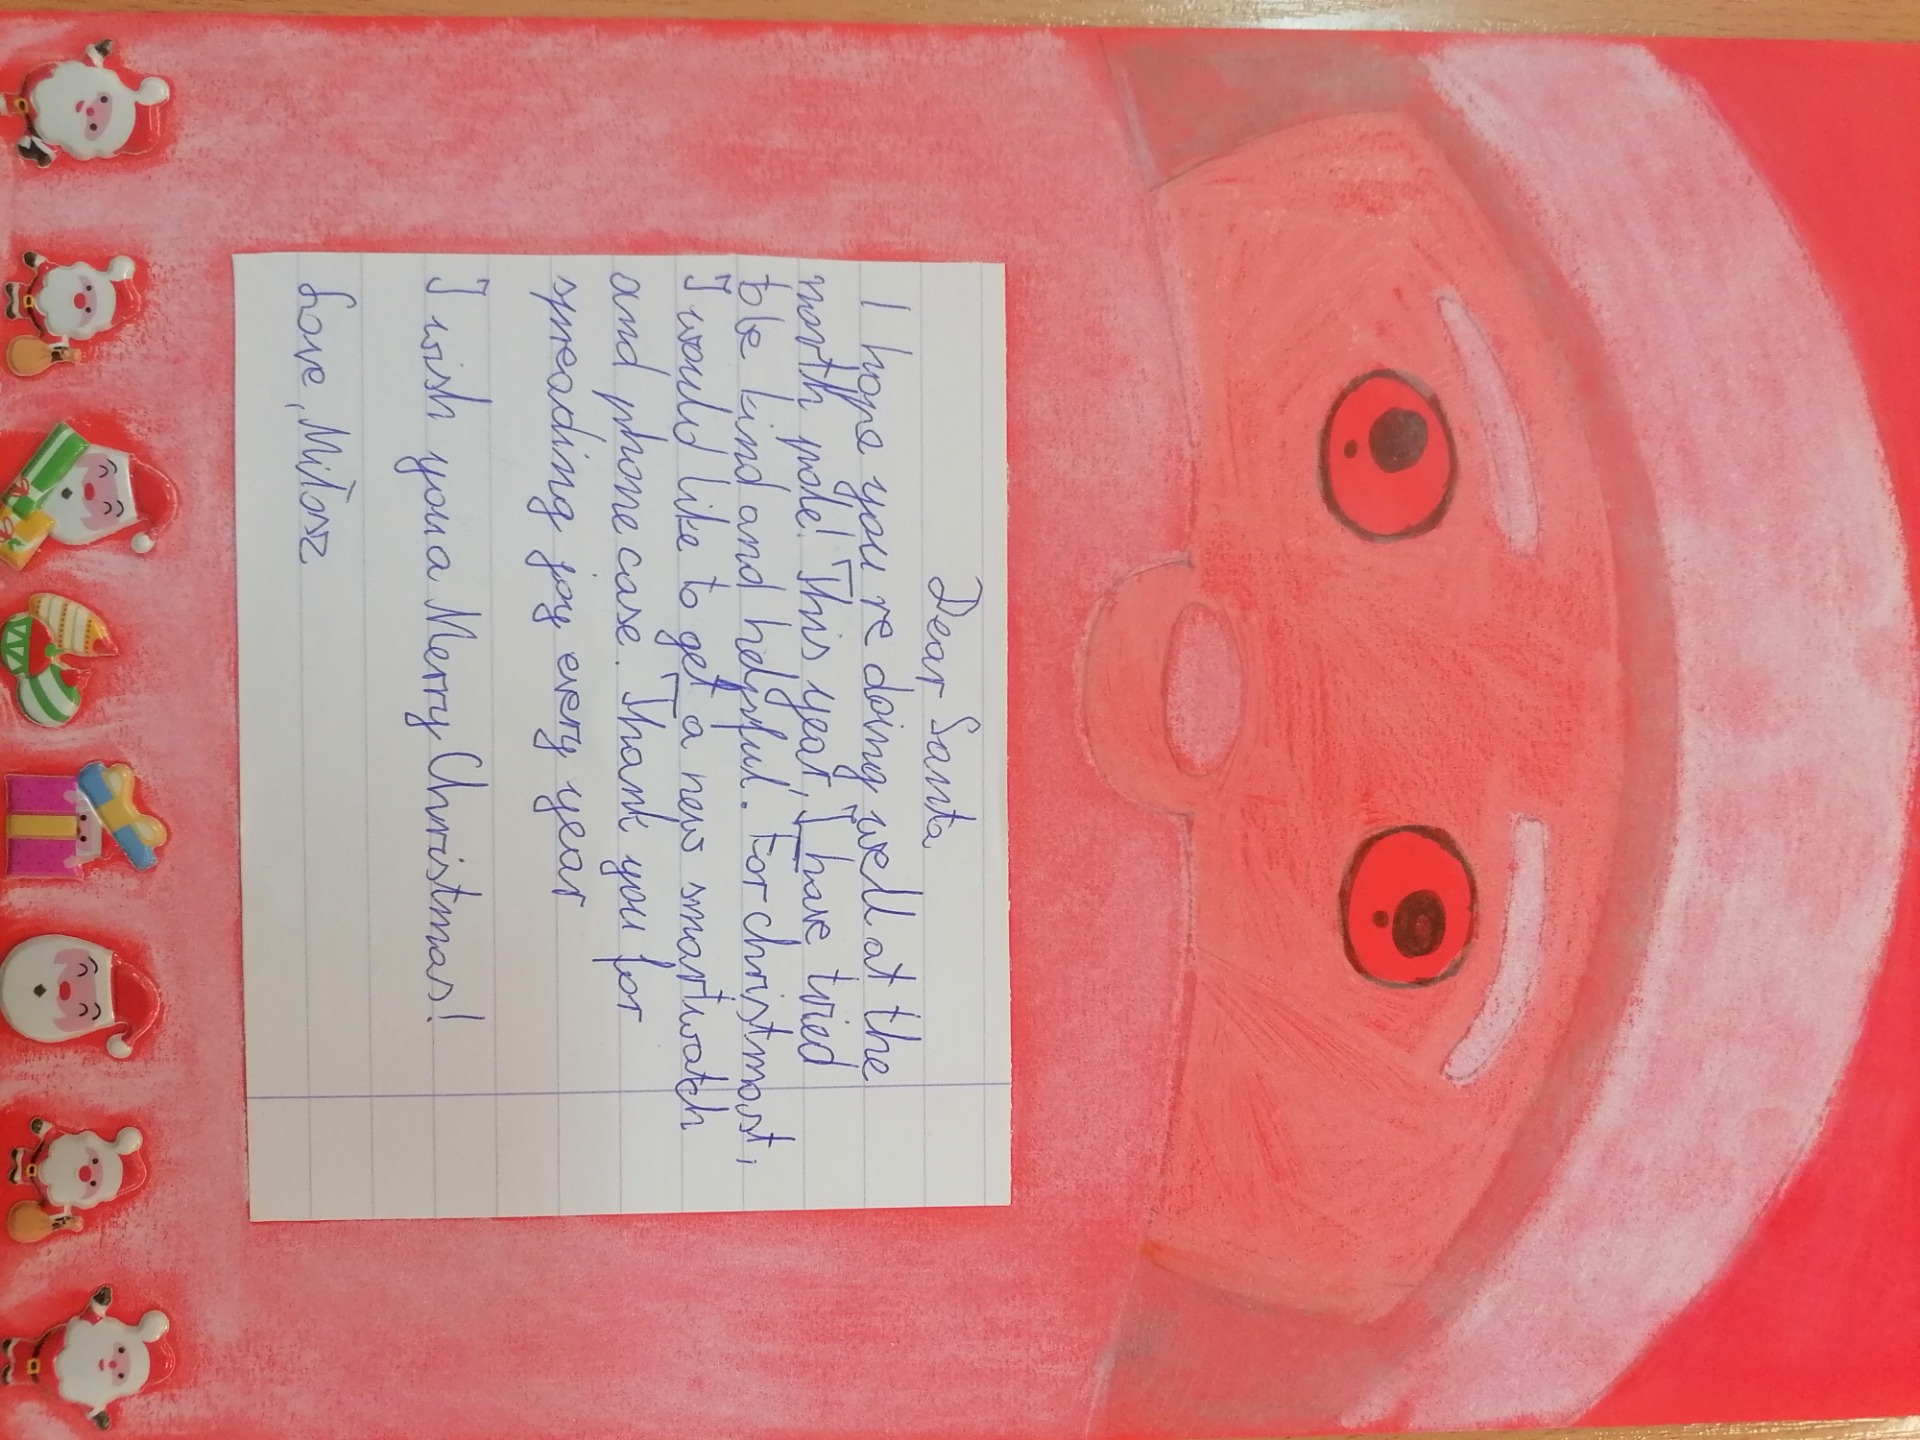 Dear Santa
I hope you're doing well at the
north pole! This year, I have tried
to be kind and helpful. For christmast,
I would like to get a new smartwatch
and phone case. Thank you for
spreading joy every year
I wish you a Merry Christmas!
Love, Miłosz